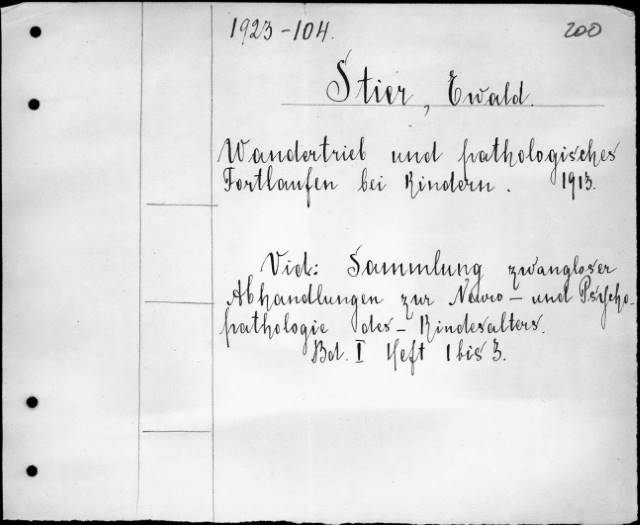 1923-104. 200
Stier, Ewald.
Wandertrieb und pathologisches
Fortlaufen bei Kindern. 1913.
Vid: Sammlung zwangloser
Abhandlungen zur Neuro- und Psycho-
pathologie des- Kindesalters.
Bd. I Heft 1 bis 3.